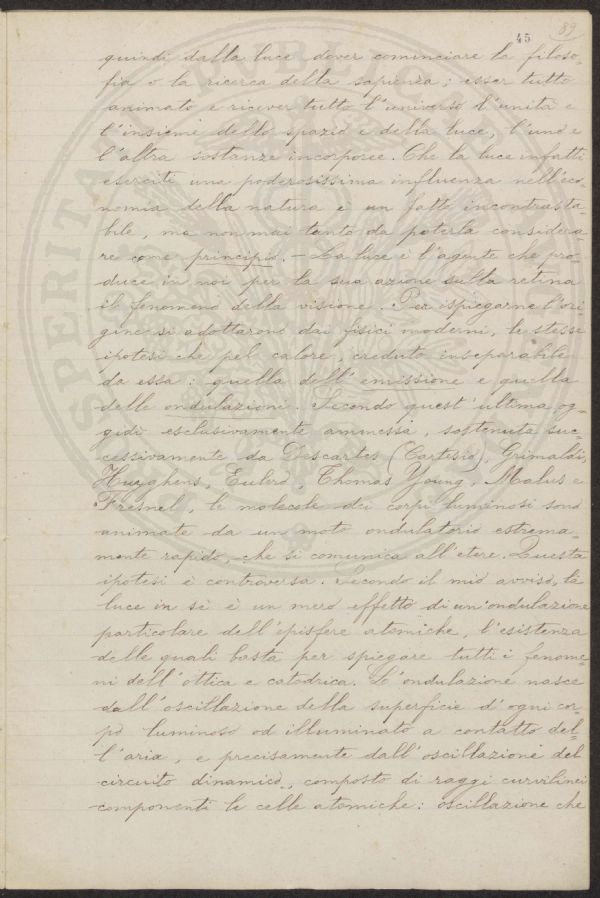 45 89
quindi dalla luce dover cominciare la filoso-
fia o la ricerca della sapienza; esser tutto
animato e ricever tutto l'universo l'unità e
l'insieme dello spazio e della luce, l'uno e
l'altra sostanze incorporee. Che la luce infatti
eserciti una poderosissima influenza nell'eco-
nomia della natura è un fatto incontrasta-
bile, ma non mai tanto da poterla considera-
re come principio. — La luce è l'agente che pro-
duce in noi per la sua azione sulla retina
il fenomeno della visione. Per ispiegarne l'ori
gine si adottarono dai fisici moderni, le stesse
ipotesi che pel calore, creduto inseparabile
da essa: quella dell'emissione e quella
delle ondulazioni. Secondo quest'ultima og-
gidì esclusivamente ammessi, sostenuta suc-
cessivamente da Descartes (Cartesio), Grimaldi,
Huyghens, Eulero, Thomas Young, Malus e
Fresnel, le molecole dei corpi luminosi sono
animate da un moto ondulatorio estrema-
mente rapido, che si comunica all'etere. Questa
ipotesi è controversa. Secondo il mio avviso, la
luce in sè è un mero effetto di un'ondulazione
particolare dell'episfere atomiche, l'esistenza
delle quali basta per spiegare tutti i fenome-
ni dell'ottica e catodrica. L'ondulazione nasce
dall'oscillazione della superficie d'ogni cor-
po luminoso od illuminato a contatto del-
l'aria, e precisamente dall'oscillazione del
circuito dinamico, composto di raggi curvilinei
componenti le celle atomiche: oscillazione che